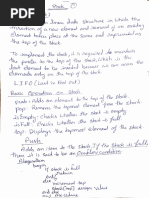 Stack
Stack is a linear data structure in which the
insertion of a new element and removal of an existing
element takes place at the same end represented as
the top of the stack.
To implement the stack, it is required to maintain
the pointer to the top of the stack, which is the
last element to be inserted because we can access the
elements only on the top of the stack.
L.I.F.O (Last in First out)
Basic Operation on Stack
push: Adds an element to the top of the stack
Pop: Removes the topmost element from the stack
isEmpty: Checks whether the stack is empty.
isFull: Checks whether the stack is full.
top: Displays the topmost element of the stack.
Push
Adds an item to the stack. If the stack is full
then it is said to be an Overflow condition.
Algorithm
begin
if stack is full
return
endif
else
increment top
stack[top] assign value
end else
end procedure